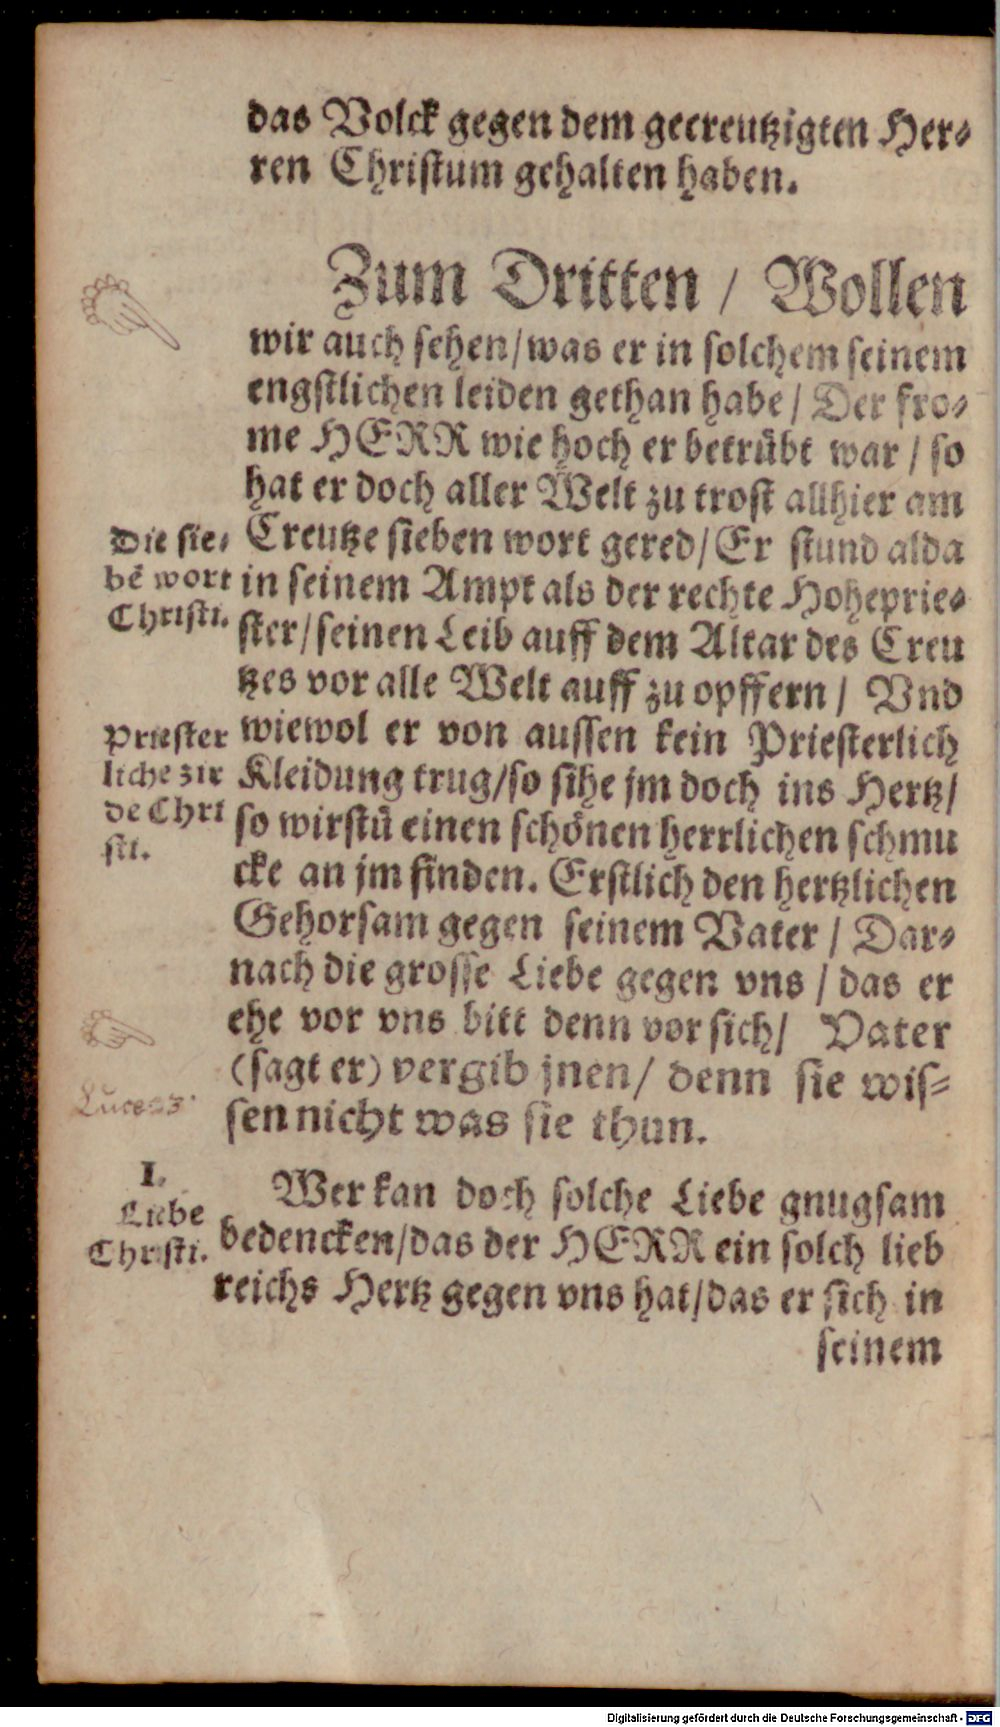 das Volck gegen dem gecreutzigten Her⸗
ren Christum gehalten haben.
Zum Dritten / Wollen
wir auch sehen/was er in solchem seinem
engstlichen leiden gethan habe / Der fro⸗
me HERR wie hoch er betrübt war / so
hat er doch aller Welt zu trost allhier am
Creutze sieben wort gered/Er stund alda
in seinem Ampt als der rechte Hohеprie⸗
ster/seinen Leib auff dem Altar des Creu
tzes vor alle Welt auff zu opffern / Vnd
wiewol er von aussen kein Priesterlich
Kleidung trug/so sihe jm doch ins Hertz/
so wirstu einen schönen herrlichen schmu
cke an jm finden. Erstlich den hertzlichen
Gehorsam gegen seinem Vater / Dar⸗
nach die grosse Liebe gegen vns / das er
ehe vor vns bitt denn vor sich/ Vater
(sagt er) vergib jnen/ denn sie wis⸗
sen nicht was sie thun.
Wer kan doch solche Liebe gnugsam
bedencken/das der HERR ein solch lieb
reichs Hertz gegen vns hat/das er sich in
seinem
Die sie⸗
bē wort
Christi.
Priester
liche zir
de Chri
sti.
Luce 23
I.
Liebe
Christi.
Digitalisierung gefördert durch die Deutsche Forschungsgemeinschaft - DFG